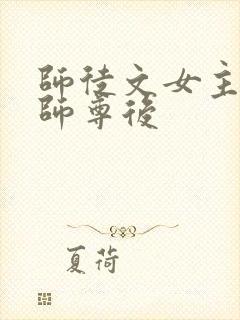 師徒文女主
師尊後
夏荷